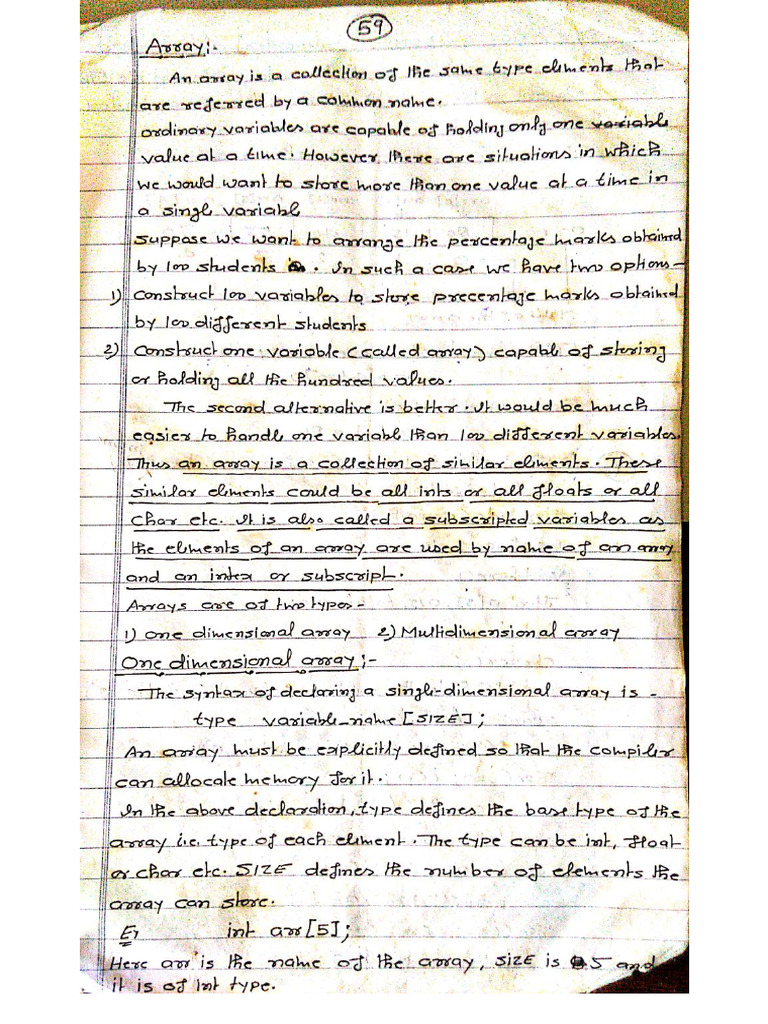 59
Array:-
An array is a collection of the same type eliments that
are referred by a common name.
ordinary variables are capable of holding only one variable
value at a time. However there are situations in which
we would want to store more than one value at a time in
a singl variabl
suppose we want to arrange the percentage marks obtained
by 100 students . In such a case we have two options-
1) Construct 100 variables to store precentage marks obtained
by 100 different students
2) Construct one variable (called array) capable of storing
or holding all the hundred values.
The second alternative is better. It would be much
easier to handl one variabl than 100 different variables.
Thus an array is a collection of similar eliments. These
similar eliments could be all ints or all floats or all
char etc. It is also called a subscripted variables as
the elments of an array are used by name of an array
and an intex or subscript.
Arrays are of two types-
1) One dimensional array 2) Multidimensional array
One dimensional array:-
The syntax of declaring a single-dimensional array is -
type variable_name [SIZE];
An array must be explicitly defined so that the compiler
can allocate memory for it.
In the above declaration, type defines the base type of the
array i.e. type of each eliment. The type can be int, float
or char etc. SIZE defines the number of elements the
array can store.
E, int arr[5];
Here arr is the name of the array, SIZE is 5 and
it is of int type.